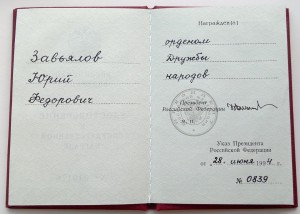 Завьялов
Юрий
Федорович
Награжден(а)
орденом
Дружбы
народов
Президент
Российской Федерации
М. П.
Указ Президента
Российской Федерации
от „28" июня 1994 г.
№ 0839